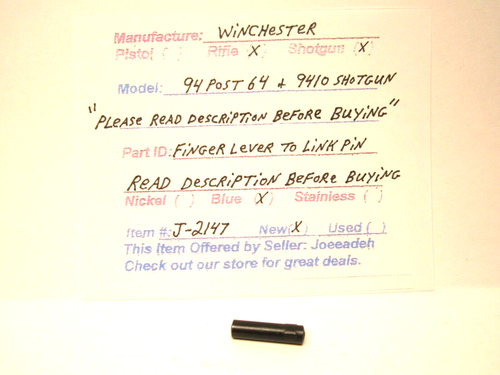 Manufacture: WINCHESTER
Pistol ( ) Rifle (X) Shotgun (X)
Model: 94 POST 64 & 9410 SHOTGUN
"PLEASE READ DESCRIPTION BEFORE BUYING"
Part ID: FINGER LEVER TO LINK PIN
READ DESCRIPTION BEFORE BUYING
Nickel ( ) Blue (X) Stainless ( )
Item #: J-2147 New (X) Used ( )
This Item Offered by Seller: Joeeadeh
Check out our store for great deals.